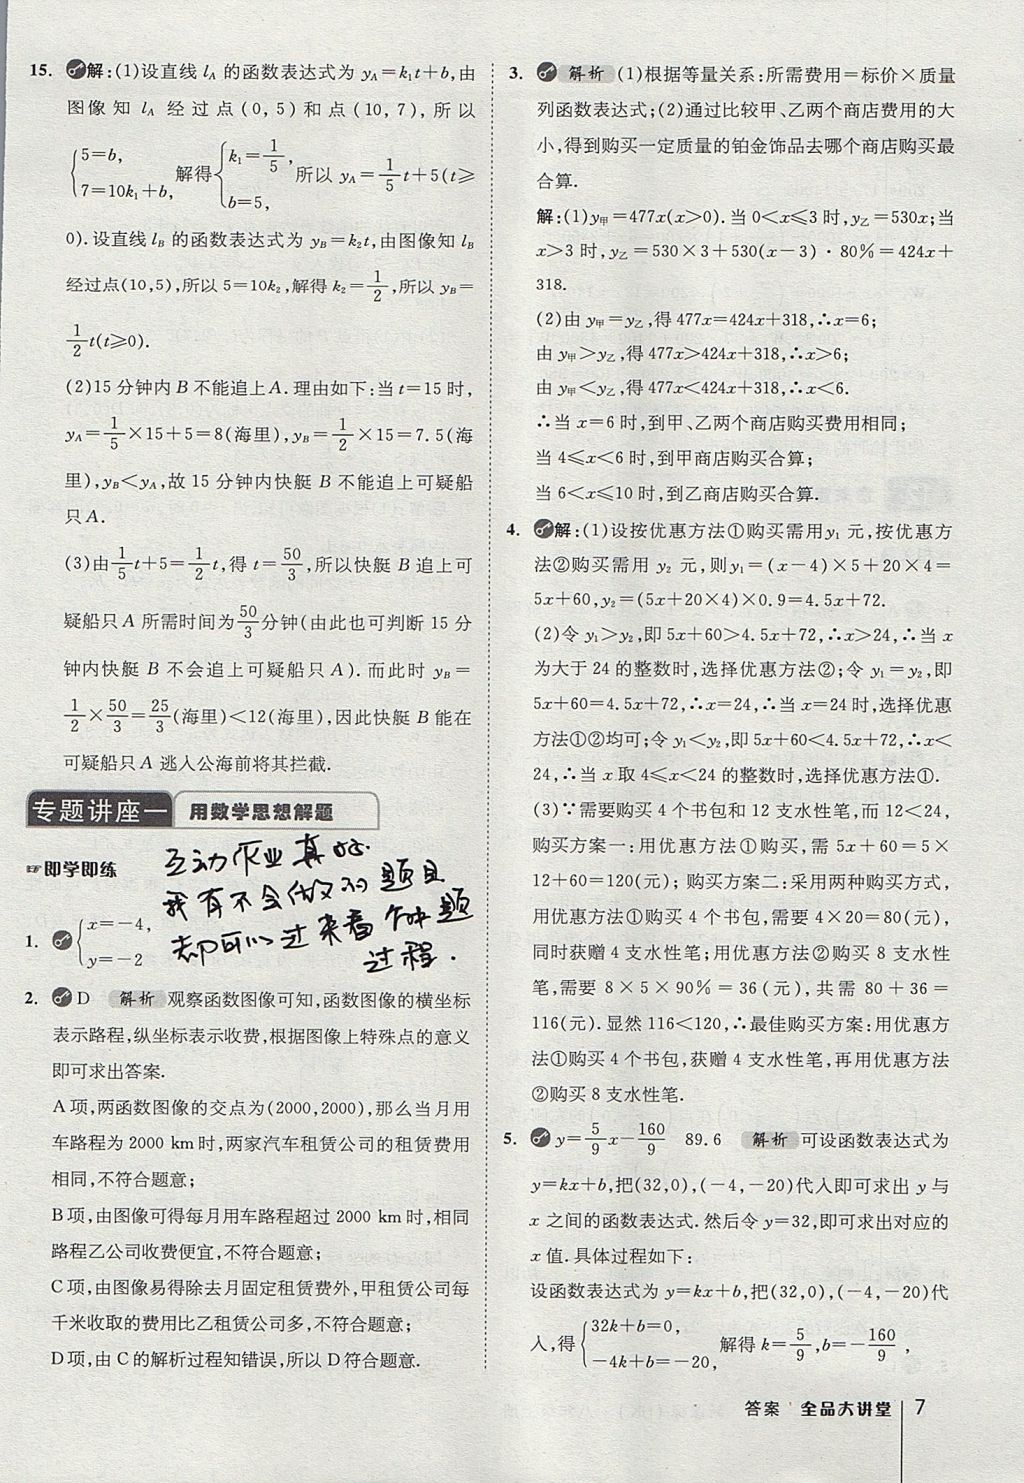 15. 解:(1)设直线 lA 的函数表达式为 yA=k₁t+b,由
图像知 lA 经过点(0,5)和点(10,7),所以
{5=b, 7=10k₁+b, 解得{k₁=1/5, b=5, 所以 yA=1/5t+5(t≥
0).设直线 lB 的函数表达式为 yB=k₂t,由图像知 lB
经过点(10,5),所以 5=10k₂,解得 k₂=1/2,所以 yB=
1/2t(t≥0).
(2)15 分钟内 B 不能追上 A.理由如下:当 t=15 时,
yA=1/5×15+5=8(海里),yB=1/2×15=7.5(海
里),yB<yA,故 15 分钟内快艇 B 不能追上可疑船
只 A.
(3)由1/5t+5=1/2t,得 t=50/3,所以快艇 B 追上可
疑船只 A 所需时间为50/3分钟(由此也可判断 15 分
钟内快艇 B 不会追上可疑船只 A).而此时 yB=
1/2×50/3=25/3(海里)<12(海里),因此快艇 B 能在
可疑船只 A 逃入公海前将其拦截.
专题讲座一 用数学思想解题
☞即学即练
互动作业真好.
我有不会做的题目
却可以过来看解题
过程.
1. {x=-4, y=-2
2. D 解析 观察函数图像可知,函数图像的横坐标
表示路程,纵坐标表示收费,根据图像上特殊点的意义
即可求出答案.
A 项,两函数图像的交点为(2000,2000),那么当月用
车路程为 2000 km时,两家汽车租赁公司的租赁费用
相同,不符合题意;
B 项,由图像可得每月用车路程超过 2000 km时,相同
路程乙公司收费便宜,不符合题意;
C 项,由图像易得除去月固定租赁费外,甲租赁公司每
千米收取的费用比乙租赁公司多,不符合题意;
D 项,由 C 的解析过程知错误,所以 D 符合题意.
3. 解析 (1)根据等量关系:所需费用=标价×质量
列函数表达式;(2)通过比较甲、乙两个商店费用的大
小,得到购买一定质量的铂金饰品去哪个商店购买最
合算.
解:(1)y甲=477x(x>0).当 0<x≤3 时,y乙=530x;当
x>3 时,y乙=530×3+530(x-3)·80%=424x+
318.
(2)由 y甲=y乙,得 477x=424x+318,∴x=6;
由 y甲>y乙,得 477x>424x+318,∴x>6;
由 y甲<y乙,得 477x<424x+318,∴x<6.
∴当 x=6 时,到甲、乙两个商店购买费用相同;
当 4≤x<6 时,到甲商店购买合算;
当 6<x≤10 时,到乙商店购买合算.
4. 解:(1)设按优惠方法①购买需用y₁ 元,按优惠方
法②购买需用 y₂ 元,则y₁=(x-4)×5+20×4=
5x+60,y₂=(5x+20×4)×0.9=4.5x+72.
(2)令 y₁>y₂,即 5x+60>4.5x+72,∴x>24,∴当 x
为大于 24 的整数时,选择优惠方法②;令 y₁=y₂,即
5x+60=4.5x+72,∴x=24,∴当 x=24 时,选择优惠
方法①②均可;令 y₁<y₂,即 5x+60<4.5x+72,∴x<
24,∴当 x 取 4≤x<24 的整数时,选择优惠方法①.
(3)∵需要购买 4 个书包和 12 支水性笔,而 12<24,
购买方案一:用优惠方法①购买,需 5x+60=5×
12+60=120(元);购买方案二:采用两种购买方式,
用优惠方法①购买 4 个书包,需要 4×20=80(元),
同时获赠 4 支水性笔;用优惠方法②购买 8 支水性笔,
需要 8×5×90%=36(元),共需 80+36=
116(元).显然 116<120,∴最佳购买方案:用优惠方
法①购买 4 个书包,获赠 4 支水性笔,再用优惠方法
②购买 8 支水性笔.
5. y=5/9x-160/9 89.6 解析 可设函数表达式为
y=kx+b,把(32,0),(-4,-20)代入即可求出 y 与
x 之间的函数表达式.然后令 y=32,即可求出对应的
x 值.具体过程如下:
设函数表达式为 y=kx+b,把(32,0),(-4,-20)代
入,得{32k+b=0, -4k+b=-20, 解得 k=5/9,b=-160/9,
答案 全品大讲堂 7